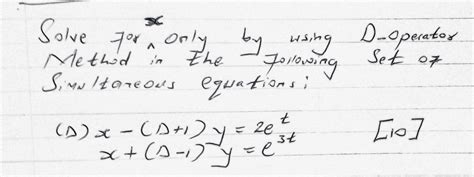 Solve for x only by using D-operator
Method in the following Set of
Simultaneous equations;
(D)x - (D+1)y = 2e^t [10]
x + (D-1)y = e^3t